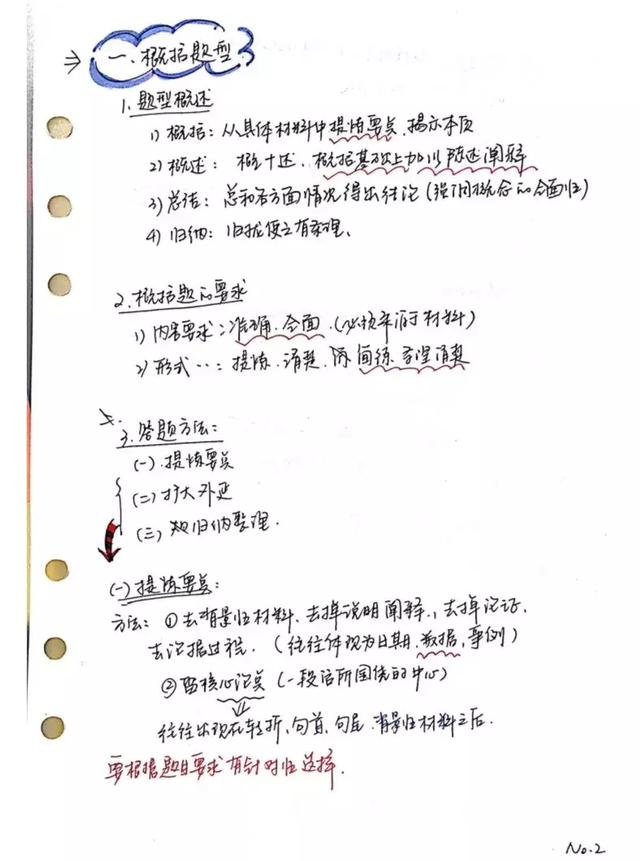 一、概括题型
1. 题型概述
1) 概括：从具体材料中提炼要点、揭示本质
2) 概述：概+述、概括基础上加以陈述阐释
3) 总结：总和各方面情况得出结论（强调概念的全面性）
4) 归纳：归拢使之有条理、
2. 概括题的要求
1) 内容要求：准确、全面、（必须来源于材料）
2) 形式…：提炼、清楚、简练、条理清楚
3. 答题方法：
(一) 提炼要点
(二) 扩大外延
(三) 归纳整理.
(一) 提炼要点：
方法：①去背景性材料、去掉说明阐释、去掉论证、
去论据过程、（往往体现为日期、数据、事例）
②留核心论点（一段话所围绕的中心）
往往出现在转折、句首、句尾、背景性材料之后.
要根据题目要求有针对性选择.
No.2